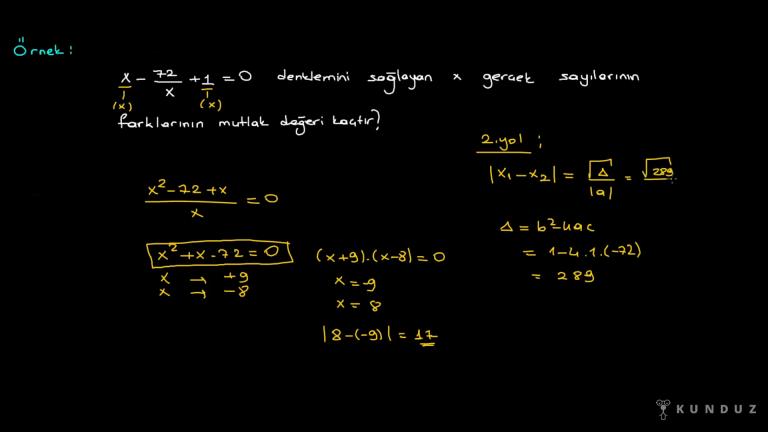 Örnek:
x - 72/x + 1/1 = 0 denklemini sağlayan x gerçek sayılarının
(x) (x)
farklarının mutlak değeri kaçtır?
x² - 72 + x / x = 0
x² + x - 72 = 0
x → +9
x → -8
(x+9).(x-8) = 0
x = -9
x = 8
|8-(-9)| = 17
2.yol ;
|x₁ - x₂| = √Δ / |a| = √289
Δ = b² - 4ac
= 1 - 4.1.(-72)
= 289
KUNDUZ